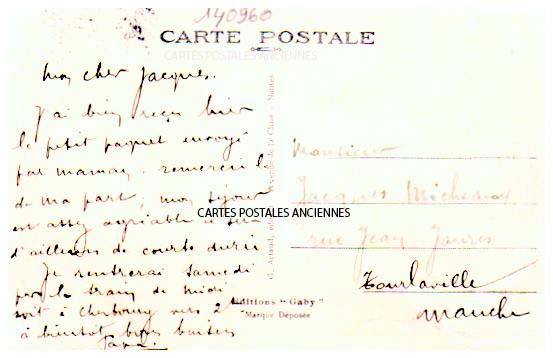 140960
CARTE POSTALE
CARTES POSTALES ANCIENNES
Mon cher Jacques.
J'ai bien reçu hier
le petit paquet envoyé
par maman. remercie la
de ma part, mon séjour
est assez agréable et sera
d'ailleurs de courte durée
Je rentrerai samedi
par le train de midi
soit à Cherbourg vers 2
à bientôt bons baisers
Papa.
CARTES POSTALES ANCIENNES
G. Artaud, de la Close - Nantes
Editions "Gaby"
Marque Déposée
Monsieur
Jacques
rue Jean Jaurès
Tourlaville
Manche